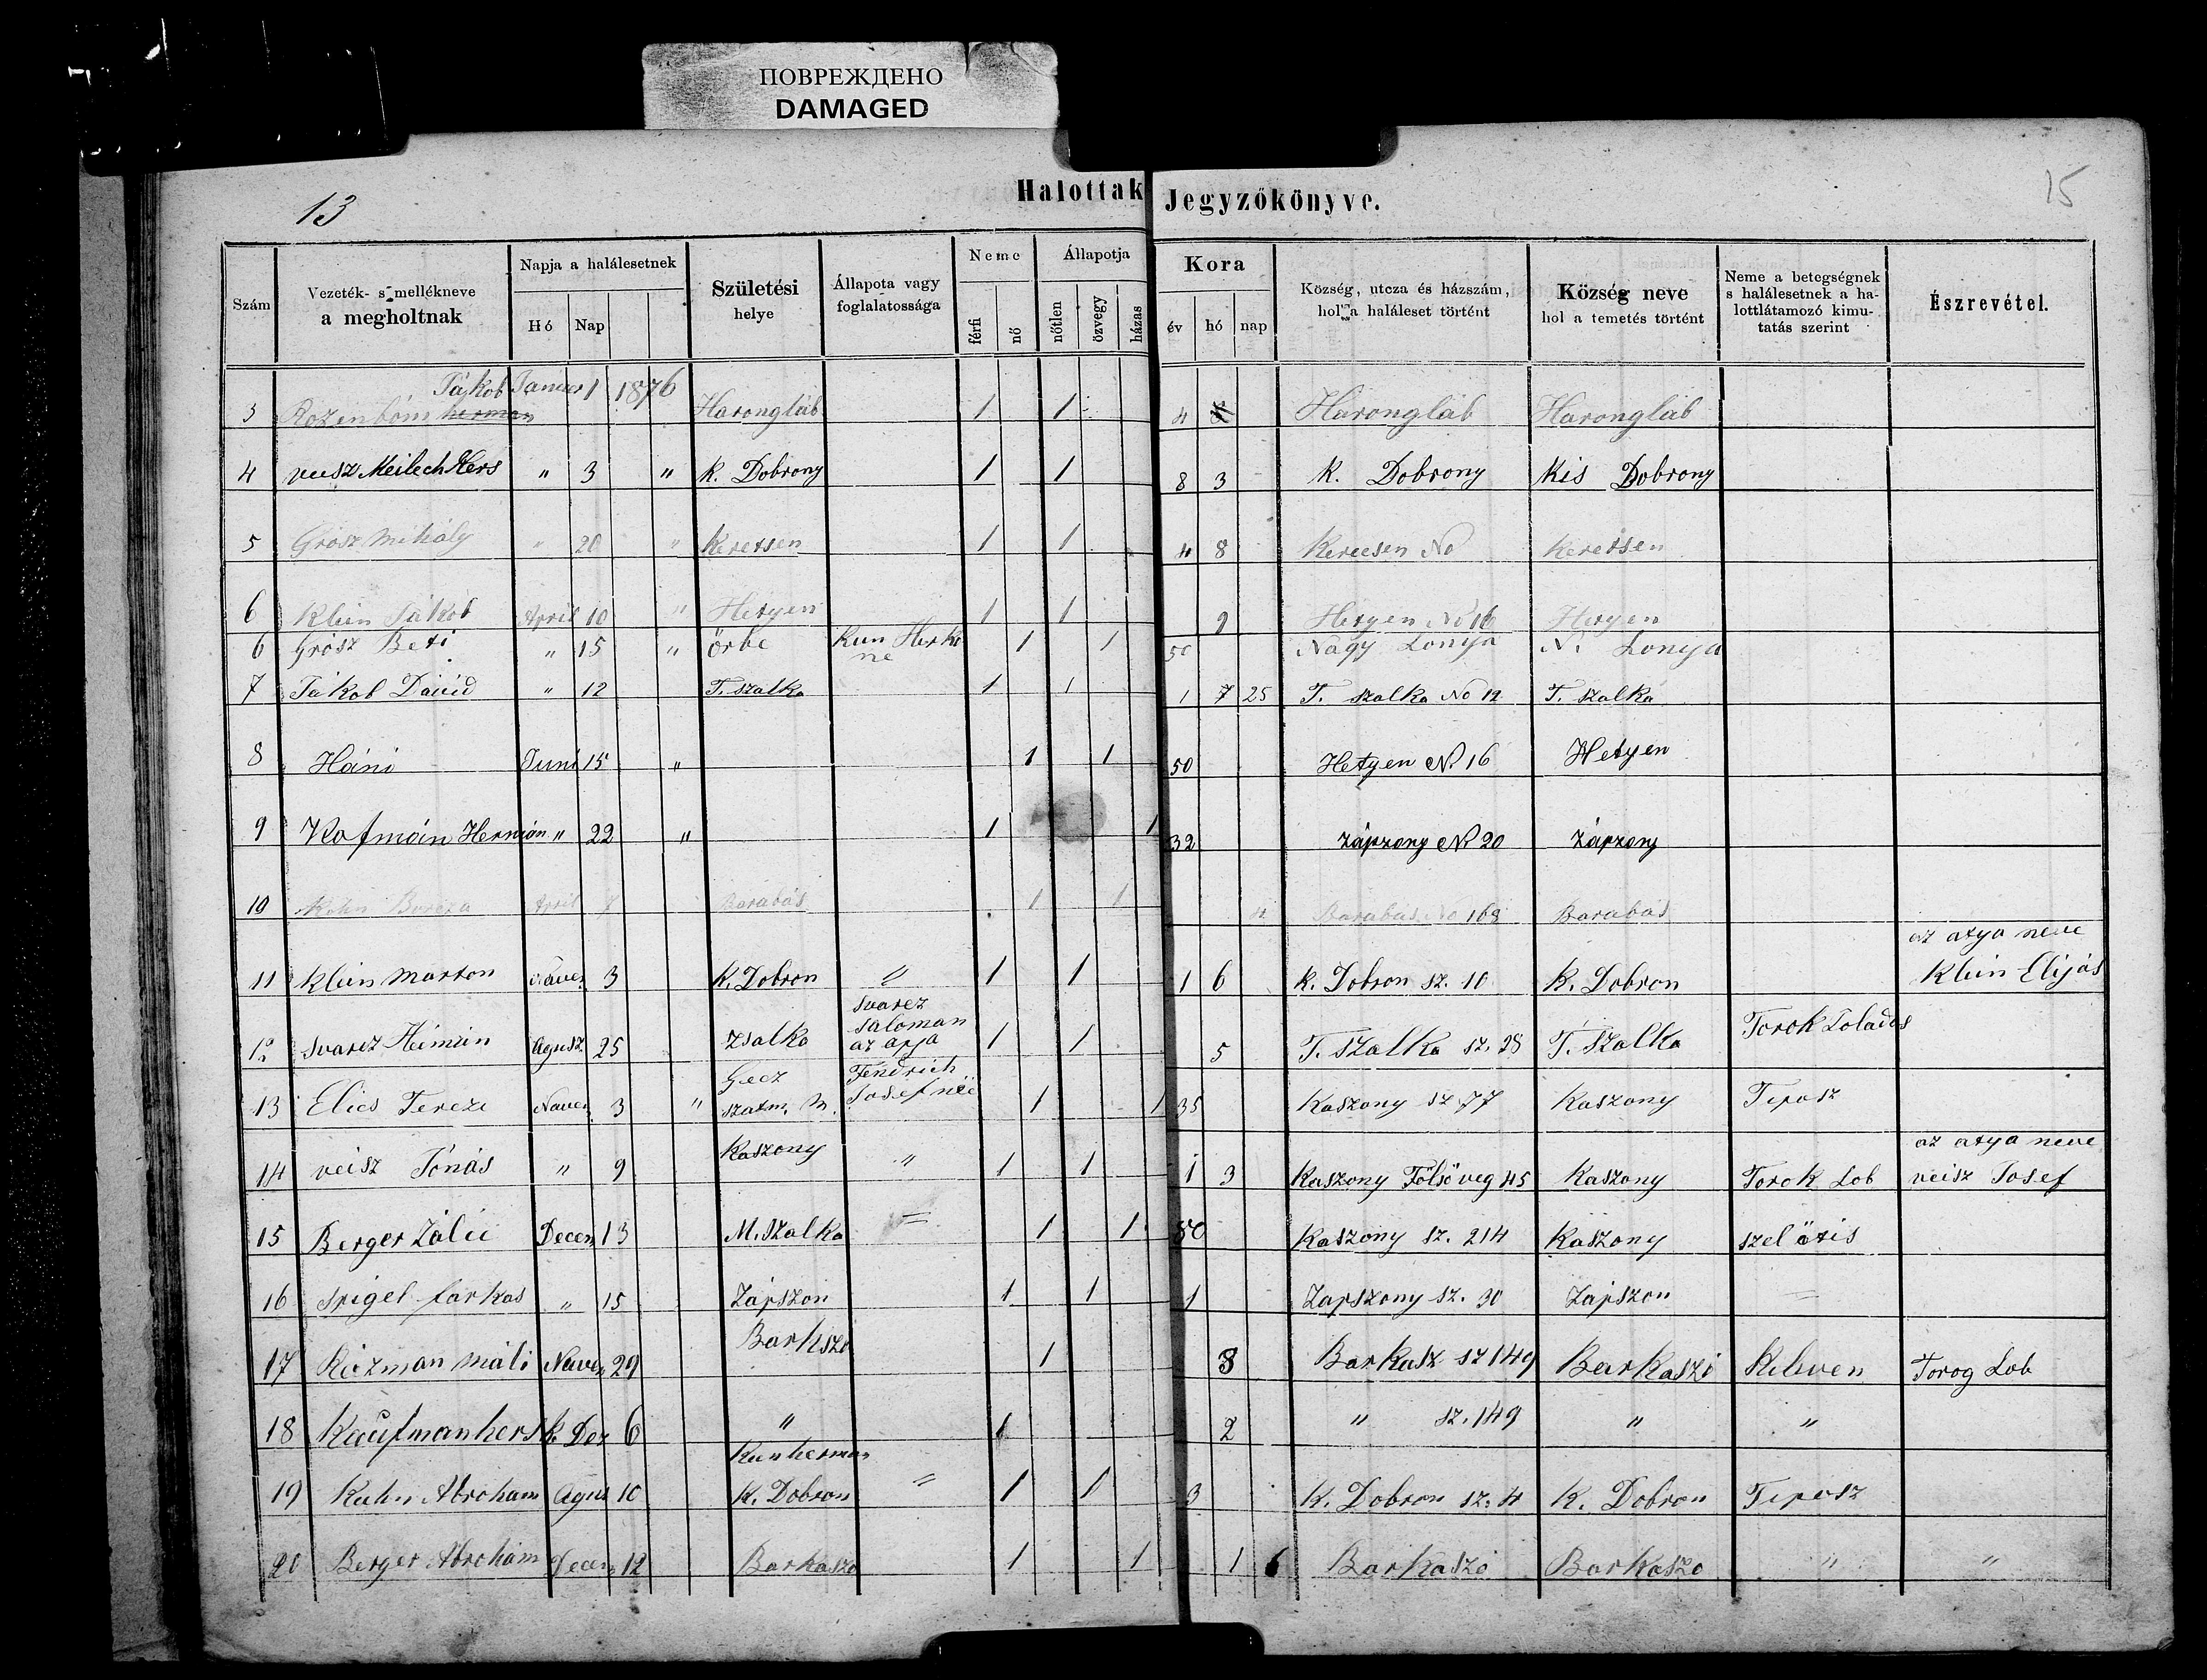 ПОВРЕЖДЕНО
DAMAGED
13
Halottak Jegyzőkönyve.
15
Szám Vezeték- s mellékneve a megholtnak Napja a halálesetnek Hó Nap Születési helye Állapota vagy foglalatossága Neme férfi nő Állapotja nőtlen özvegy házas Kora év hó nap Község, utcza és házszám, hol a haláleset történt Község neve hol a temetés történt Neme a betegségnek s halálesetnek a halottlátamozó kimutatás szerint Észrevétel.
3 Rozinbóm herman Jákob Januer 1 1876 Harongláb 1 1 4 Harongláb Harongláb
4 veisz Meilech Hers " 3 " K. Dobrony 1 1 8 3 K. Dobrony Kis Dobrony
5 Grósz Mihály " 20 " Keretsen 1 1 4 8 Kerecsen No Keretsen
6 Klein Jákob April 10 " Hetyen 1 1 9 Hetyen No 16 Hetyen
6 Grósz Beti " 15 " örbe Kun Herk ne 1 1 50 Nagy Lonya N. Lonya
7 Jákob Dávid " 12 T. szalka 1 1 1 7 25 T. szalka No 12 T. szalka
8 Háni Juni 15 " 1 1 50 Hetyen N. 16 Hetyen
9 Kofmán Hermán " 22 " 1 1 32 Zápzony N 20 Zápzony
10 April 7 Barabás 1 1 Barabás No 168 Barabás
11 Klein Marton Naver 3 K. Dobron " 1 1 1 6 K. Dobron sz. 10 K. Dobron az atya neve Klein Elijás
12 Svarez Heimán Agusz 25 Zsalka Svarez Saloman az apja 1 1 5 T. Szalka sz. 28 T. Szalka Torok Lolados
13 Elies Tereze Naven 3 " Gecz szatm. M. Fendrich Josef neé 1 1 35 Kaszony sz 77 Kaszony Tiposz
14 veisz Jónás " 9 Kaszony " 1 1 1 3 Kaszony Fölsöveg 45 Kaszony Torok Lob az atya neve veisz Josef
15 Berger Záli Decem 13 M. Szalka = 1 1 80 Kaszony sz. 214 Kaszony szel ötis
16 Spigel farkas " 15 Zápszon 1 1 1 Zapszony sz. 30 Zápszon
17 Riezman máli Naven 29 Barkszo 1 3 Barkasz sz 149 Barkaszó Keleven Torog Lob
18 Kaufman hersk Dez 6 " 1 2 " sz. 149 " "
19 Kuhn Abroham Agus 10 Kun herman K. Dobron " 1 1 3 K. Dobron sz. 4 K. Dobron Tiposz
20 Berger Abrohám Decem 12 Barkaszo 1 1 1 6 Barkaszó Barkaszo " "